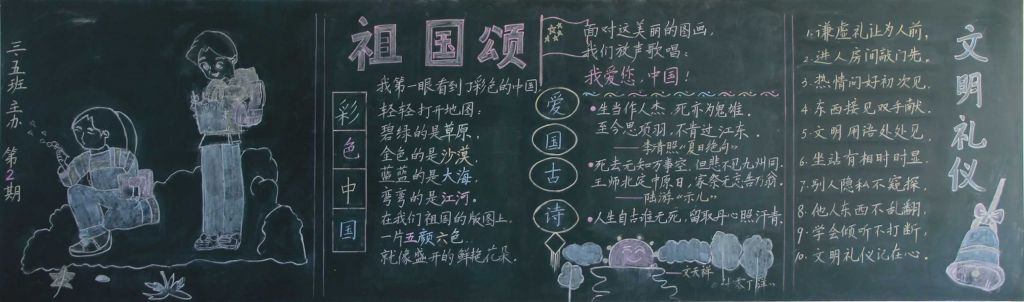 三五班 主办 第2期
祖国颂
彩色中国
我第一眼看到了彩色的中国!
轻轻打开地图:
碧绿的是草原,
金色的是沙漠,
蓝蓝的是大海,
弯弯的是江河。
在我们祖国的版图上,
一片五颜六色,
就像盛开的鲜艳花朵。
面对这美丽的图画,
我们放声歌唱:
我爱您,中国!
爱国古诗
•生当作人杰,死亦为鬼雄。
至今思项羽,不肯过江东。
——李清照“夏日绝句”
•死去元知万事空,但悲不见九州同。
王师北定中原日,家祭无忘告乃翁。
——陆游“示儿”
•人生自古谁无死,留取丹心照汗青。
——文天祥
文明礼仪
1.谦虚礼让为人前,
2.进人房间敲门先。
3.热情问好初次见,
4.东西接见双手献。
5.文明用语处处见,
6.坐站有相时时显。
7.别人隐私不窥探,
8.他人东西不乱翻,
9.学会倾听不打断,
10.文明礼仪记在心。